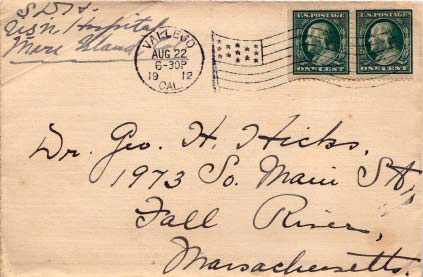 USN Hospital
Mare Island
VALLEJO
AUG 22
6-30P
1912
CAL.
U.S. POSTAGE U.S. POSTAGE
ONE CENT ONE CENT
Dr. Geo. H. Hicks,
1973 So. Main St,
Fall River,
Massachusetts.